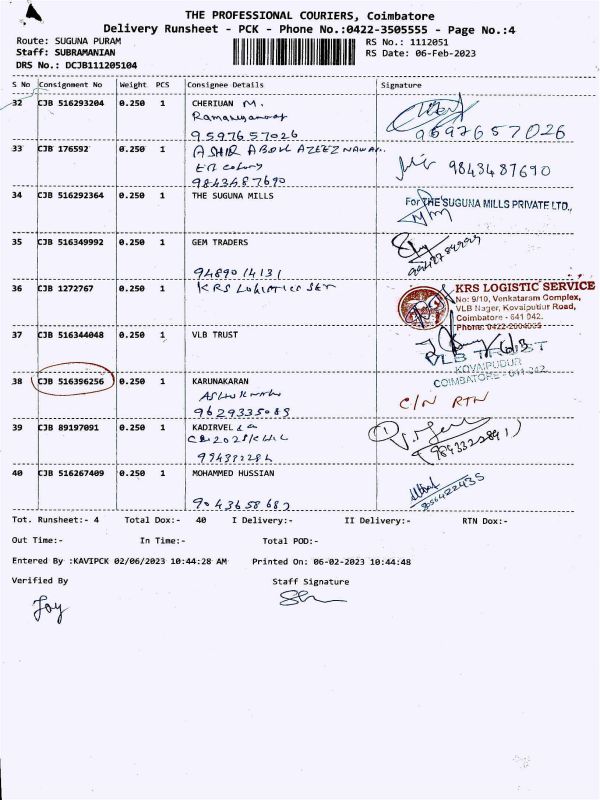 THE PROFESSIONAL COURIERS, Coimbatore
Delivery Runsheet - PCK - Phone No.:0422-3505555 - Page No.:4
Route: SUGUNA PURAM
RS No.: 1112051
Staff: SUBRAMANIAN
RS Date: 06-Feb-2023
DRS No.: DCJB111205104
S No Consignment No Weight PCS Consignee Details Signature
32 CJB 516293204 0.250 1 CHERIUAN M.
9597657026 9597657026
33 CJB 176592 0.250 1 ASHIR ABDUL AZEEZ
EB colony
9843487690 9843487690
34 CJB 516292364 0.250 1 THE SUGUNA MILLS
For THE SUGUNA MILLS PRIVATE LTD.,
35 CJB 516349992 0.250 1 GEM TRADERS
9489014131
36 CJB 1272767 0.250 1 KRS
KRS LOGISTIC SERVICE
No: 9/10, Venkataram Complex,
VLB Nager, Kovaipudur Road,
Coimbatore - 641 042.
Phone: 0422-2604035
37 CJB 516344048 0.250 1 VLB TRUST
VLB TRUST
KOVAIPUDUR
COIMBATORE - 641 042
38 CJB 516396256 0.250 1 KARUNAKARAN
9629335089
C/N RTN
39 CJB 89197091 0.250 1 KADIRVEL
40 CJB 516267409 0.250 1 MOHAMMED HUSSIAN
9043658682
Tot. Runsheet:- 4 Total Dox:- 40 I Delivery:- II Delivery:- RTN Dox:-
Out Time:- In Time:- Total POD:-
Entered By :KAVIPCK 02/06/2023 10:44:28 AM Printed On: 06-02-2023 10:44:48
Verified By Staff Signature
Joy